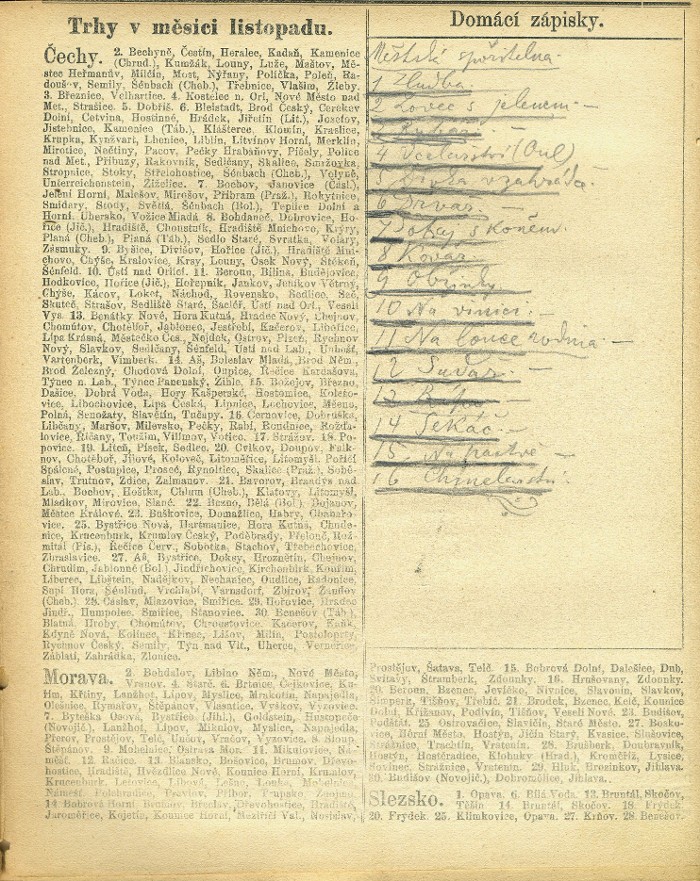 Trhy v měsíci listopadu.
Čechy. 2. Bechyně, Čestín, Heralec, Kadaň, Kamenice
(Chrud.), Kumžák, Louny, Luže, Maštov, Mě-
stec Heřmanův, Milčín, Most, Nýřany, Polička, Poleň, Ra-
doušov, Semily, Šénbach (Cheb.), Třebnice, Vlašim, Žleby.
3. Březnice, Velhartice. 4. Kostelec n. Orl, Nové Město nad
Met., Strašice. 5. Dobříš. 6. Bleistadt, Brod Český, Cerekev
Dolní, Cetvina, Hostinné, Hrádek, Jiřetín (Lit.), Josefov,
Jistebnice, Kamenice (Táb.), Klášterec, Klomín, Kraslice,
Krupka, Kynžvart, Lhenice, Liblín, Litvínov Horní, Merklín,
Mirotice, Nečtiny, Pacov, Pečky Hrabáňovy, Plčely, Police
nad Met., Příbuzy, Rakovník, Sedlčany, Skalice, Smržovka,
Stropnice, Stoky, Střelohostice, Šénbach (Cheb.), Volyně,
Unterreichenstein, Žiželice. 7. Bochov, Janovice (Čásl.),
Jelení Horní, Malešov, Mirošov, Příbram (Praž.), Rokytnice,
Smidary, Stody, Světlá, Šénbach (Bol.), Teplice Dolní a
Horní. Uhersko, Vožice Mladá. 8. Bohdaneč, Dobrovice, Ho-
řice (Jič.), Hradiště, Choustník, Hradiště Mnichovo, Krýry,
Planá (Cheb.), Planá (Táb.), Sedlo Staré, Svratka, Volary,
Zásmuky. 9. Byšice, Divišov, Hořice (Jič.), Hradiště Mni-
chovo, Chyše, Kralovice, Krsy, Louny, Osek Nový, Štěkeň,
Šénfeld. 10. Ústí nad Orlicí. 11. Beroun, Bílina, Budějovice,
Hodkovice, Hořice (Jič.), Hořepník, Jankov, Jeníkov Větrný,
Chyše, Kácov, Loket, Náchod, Rovensko, Sedlice, Seč,
Skuteč, Strašov, Sedliště Staré, Šacléř, Ústí nad Orl., Veselí
Vys. 13. Benátky Nové, Hora Kutná, Hradec Nový, Chejnov,
Chomútov, Chotěboř, Jablonec, Jestřebí, Kačerov, Libořice,
Lípa Krásná, Městečko Čes., Nejdek, Ostrov, Plzeň, Rychnov
Nový, Slavkov, Sedlčany, Šénfeld, Ústí nad Lab., Unhošť,
Vartenberk, Vimberk. 14. Aš, Boleslav Mladá, Brod Něm.,
Brod Železný, Chodová Dolní, Oupice, Řečice Kardašova,
Týnec n. Lab., Týnec Panenský, Žihle. 15. Božejov, Březno,
Dašice, Dobrá Voda, Hory Kašperské, Hostomice, Koleto-
vice, Libochovice, Lípa Česká, Lipnice, Lochovice, Mšeno,
Polná, Senožaty, Slavětín, Tučapy. 16. Černovice, Dobruška,
Libčany, Maršov, Milevsko, Pečky, Rabí, Roudnice, Rožďa-
lovice, Říčany, Toužim, Vilímov, Votice. 17. Strážov. 18. Po-
povice. 19. Liteň, Písek, Sedlec. 20. Cvikov, Doupov, Falk-
nov, Chotěboř, Jílové, Koloveč, Litoměřice, Litomyšl, Poříčí
Spálené, Postupice, Proseč, Rynoltice, Skalice (Praž.), Sobě-
slav, Trutnov, Zdice, Žalmanov. 21. Bavorov, Brandýs nad
Lab., Bochov, Hoštka, Chlum (Cheb.), Klatovy, Litomyšl,
Mladkov, Mirovice, Slané. 22. Bezno, Bělá (Bol.), Bojanov,
Městec Králové. 23. Buškovice, Domažlice, Habry, Chabařo-
vice. 25. Bystřice Nová, Hartmanice, Hora Kutná, Chude-
nice, Krucenburk, Krumlov Český, Poděbrady, Přelouč, Rož-
mitál (Pís.), Řečice Červ., Sobotka, Stachov, Třebechovice,
Zbraslavice. 27. Aš, Bystřice, Doksy, Hroznětín, Chejnov,
Chrudim, Jablonné (Bol.) Jindřichovice, Kirchenbirk, Kouřim,
Liberec, Libštein, Nadějkov, Nechanice, Oudlice, Radonice,
Supí Hora, Šénlind, Vrchlabí, Varnsdorf, Zbirov, Žandov
(Cheb.). 28. Čáslav, Mlazovice, Smiřice. 29. Hořovice, Hradec
Jindř., Humpolec, Smiřice, Stanovice. 30. Benešov (Táb.),
Blatná, Hroby, Chomútov, Chroustovice, Kačerov, Kaňk,
Kdyně Nová, Kolinec, Křinec, Lišov, Milín, Postoloprty,
Rychnov Český, Semily, Týn nad Vlt., Uherce, Vernéřec,
Záblatí, Zahrádka, Zlonice.
Morava. 2. Bohdalov, Libino Něm., Nové Město,
Vranov. 4. Staré. 6. Brtnice, Čejkovice, Ku-
řim, Křtiny, Lanžhot, Lipov, Myslice, Mrákotín, Napajedla,
Olešnice, Rymařov, Štěpánov, Vlasatice, Vyškov, Vyzovice.
7. Byteška Osová, Bystřice (Jihl.), Goldstein, Hustopeče
(Novojič.), Lanžhot, Lipov, Mikulov, Myslice, Napajedla,
Přerov, Prostějov, Telč, Uničov, Vracov, Vyzovice. 8. Sloup,
Štěpánov. 9. Mohelnice, Ostrava Mor. 11. Mikulovice, Ná-
měšť. 12. Račice. 13. Blansko, Bošovice, Brumov, Dřevo-
hostice, Hradiště, Hvězdlice Nové, Kounice Horní, Krumlov,
Krucenburk, Letovice,
14. Bobrová Horní, Brumov, Břeclav, Dřevohostice, Hradiště,
Jaroměřice, Kojetín, Kounice Horní, Meziříčí Val., Novosady,
Domácí zápisky.
Městská spořitelna
1 Hudba
2 Lovec s jelenem. —
3 Rybář. —
4 Včelařství (Oul)
5 Dívka v zahrádce. —
6 Drvař. —
7 Pohaj s koněm.
8 Kovář.
9 Obžinky.
10 Na vinici. —
11 Na louce rodina —
12 Sudař. —
13 Řípa
14 Sekáč. —
15 Na pastvě —
16 Chmelařství.
Prostějov, Šatava, Telč. 15. Bobrová Dolní, Dalešice, Dub,
Svitavy, Štramberk, Zdounky. 16. Hrušovany, Zdounky.
20. Beroun, Bzenec, Jevíčko, Nivnice, Slavonín, Slavkov,
Šumperk, Tišňov, Třebíč. 21. Brodek, Bzenec, Kněžice,
Doiní, Křižanov, Podivín, Tišňov, Veselí Nové. 23. Budišov,
Podštát. 25 Ostrovačice, Slavičín, Stará Město. 27. Bosko-
vice, Horní Město, Hostýn, Jičín Starý, Kvasice, Slušovice,
Strážnice, Trachtín, Vratenín. 28. Brušberk, Doubravník,
Hostýn, Hostěradice, Klobuky (Hrad.), Kroměříž, Lysice,
Slavonice, Strážnice, Vratenín. 29. Hluk, Brtnice, Jihlava.
30. Budišov (Novojič.), Dobromělice, Jihlava.
Slezsko. 1. Opava. 6. Bílá Voda. 13. Bruntál, Skočov,
Těšín. 14. Bruntál, Skočov. 18. Frýdek
20. Frýdek. 25. Klimkovice, Opava. 27. Krňov. 28. Benešov.